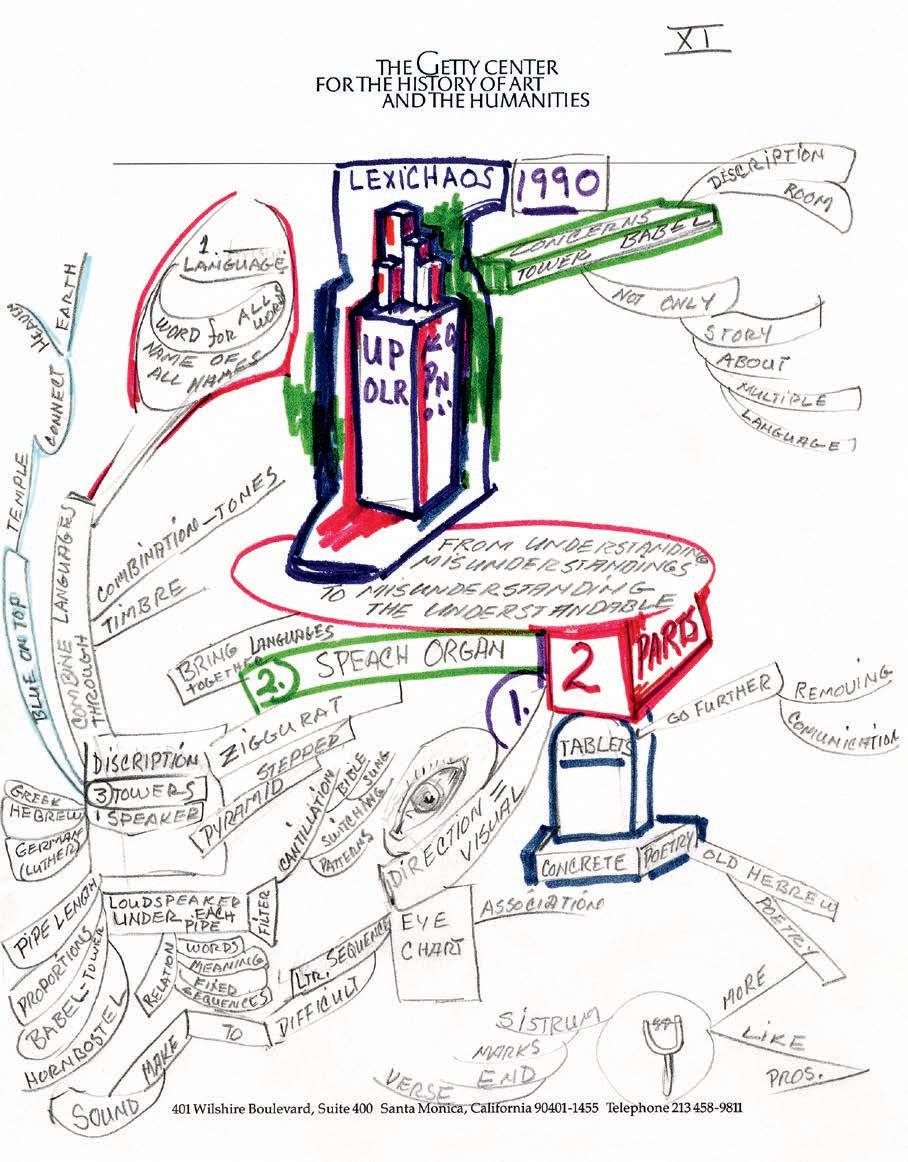 XI
THE GETTY CENTER
FOR THE HISTORY OF ART
AND THE HUMANITIES
LEXICHAOS
1990
CONCERNS
TOWER BABEL
DESCRIPTION
ROOM
NOT ONLY
STORY
ABOUT
MULTIPLE
LANGUAGE
UP
OLR
1.
LANGUAGE
WORD for ALL
WORDS
NAME OF
ALL NAMES
HEAVEN
EARTH
CONNECT
TEMPLE
BLUE ON TOP
COMBINE LANGUAGES
THROUGH
COMBINATION-TONES
TIMBRE
FROM UNDERSTANDING
MISUNDERSTANDINGS
TO MISUNDERSTANDING
THE UNDERSTANDABLE
2 PARTS
BRING LANGUAGES
TOGETHER
2. SPEACH ORGAN
1.
TABLETS
CONCRETE POETRY
GO FURTHER
REMOVING
COMUNICATION
OLD HEBREW
POETRY
MORE
LIKE
PROS.
SISTRUM
MARKS
END
VERSE
DIRECTION =
VISUAL
EYE
CHART
ASSOCIATION
LTR. SEQUENCE
DIFFICULT
TO
MAKE
SOUND
DISCRIPTION
3 TOWERS
1 SPEAKER
ZIGGURAT
STEPPED
PYRAMID
CANTILLATION
BIBLE
SUNG
SWITCHING
PATTERNS
GREEK
HEBREW
GERMAN
(LUTHER)
LOUDSPEAKER
UNDER EACH
PIPE
FILTER
RELATION
WORDS
MEANING
FIXED
SEQUENCES
PIPE LENGTH
PROPORTIONS
BABEL-TOWER
HORNBOSTEL
401 Wilshire Boulevard, Suite 400 Santa Monica, California 90401-1455 Telephone 213 458-9811